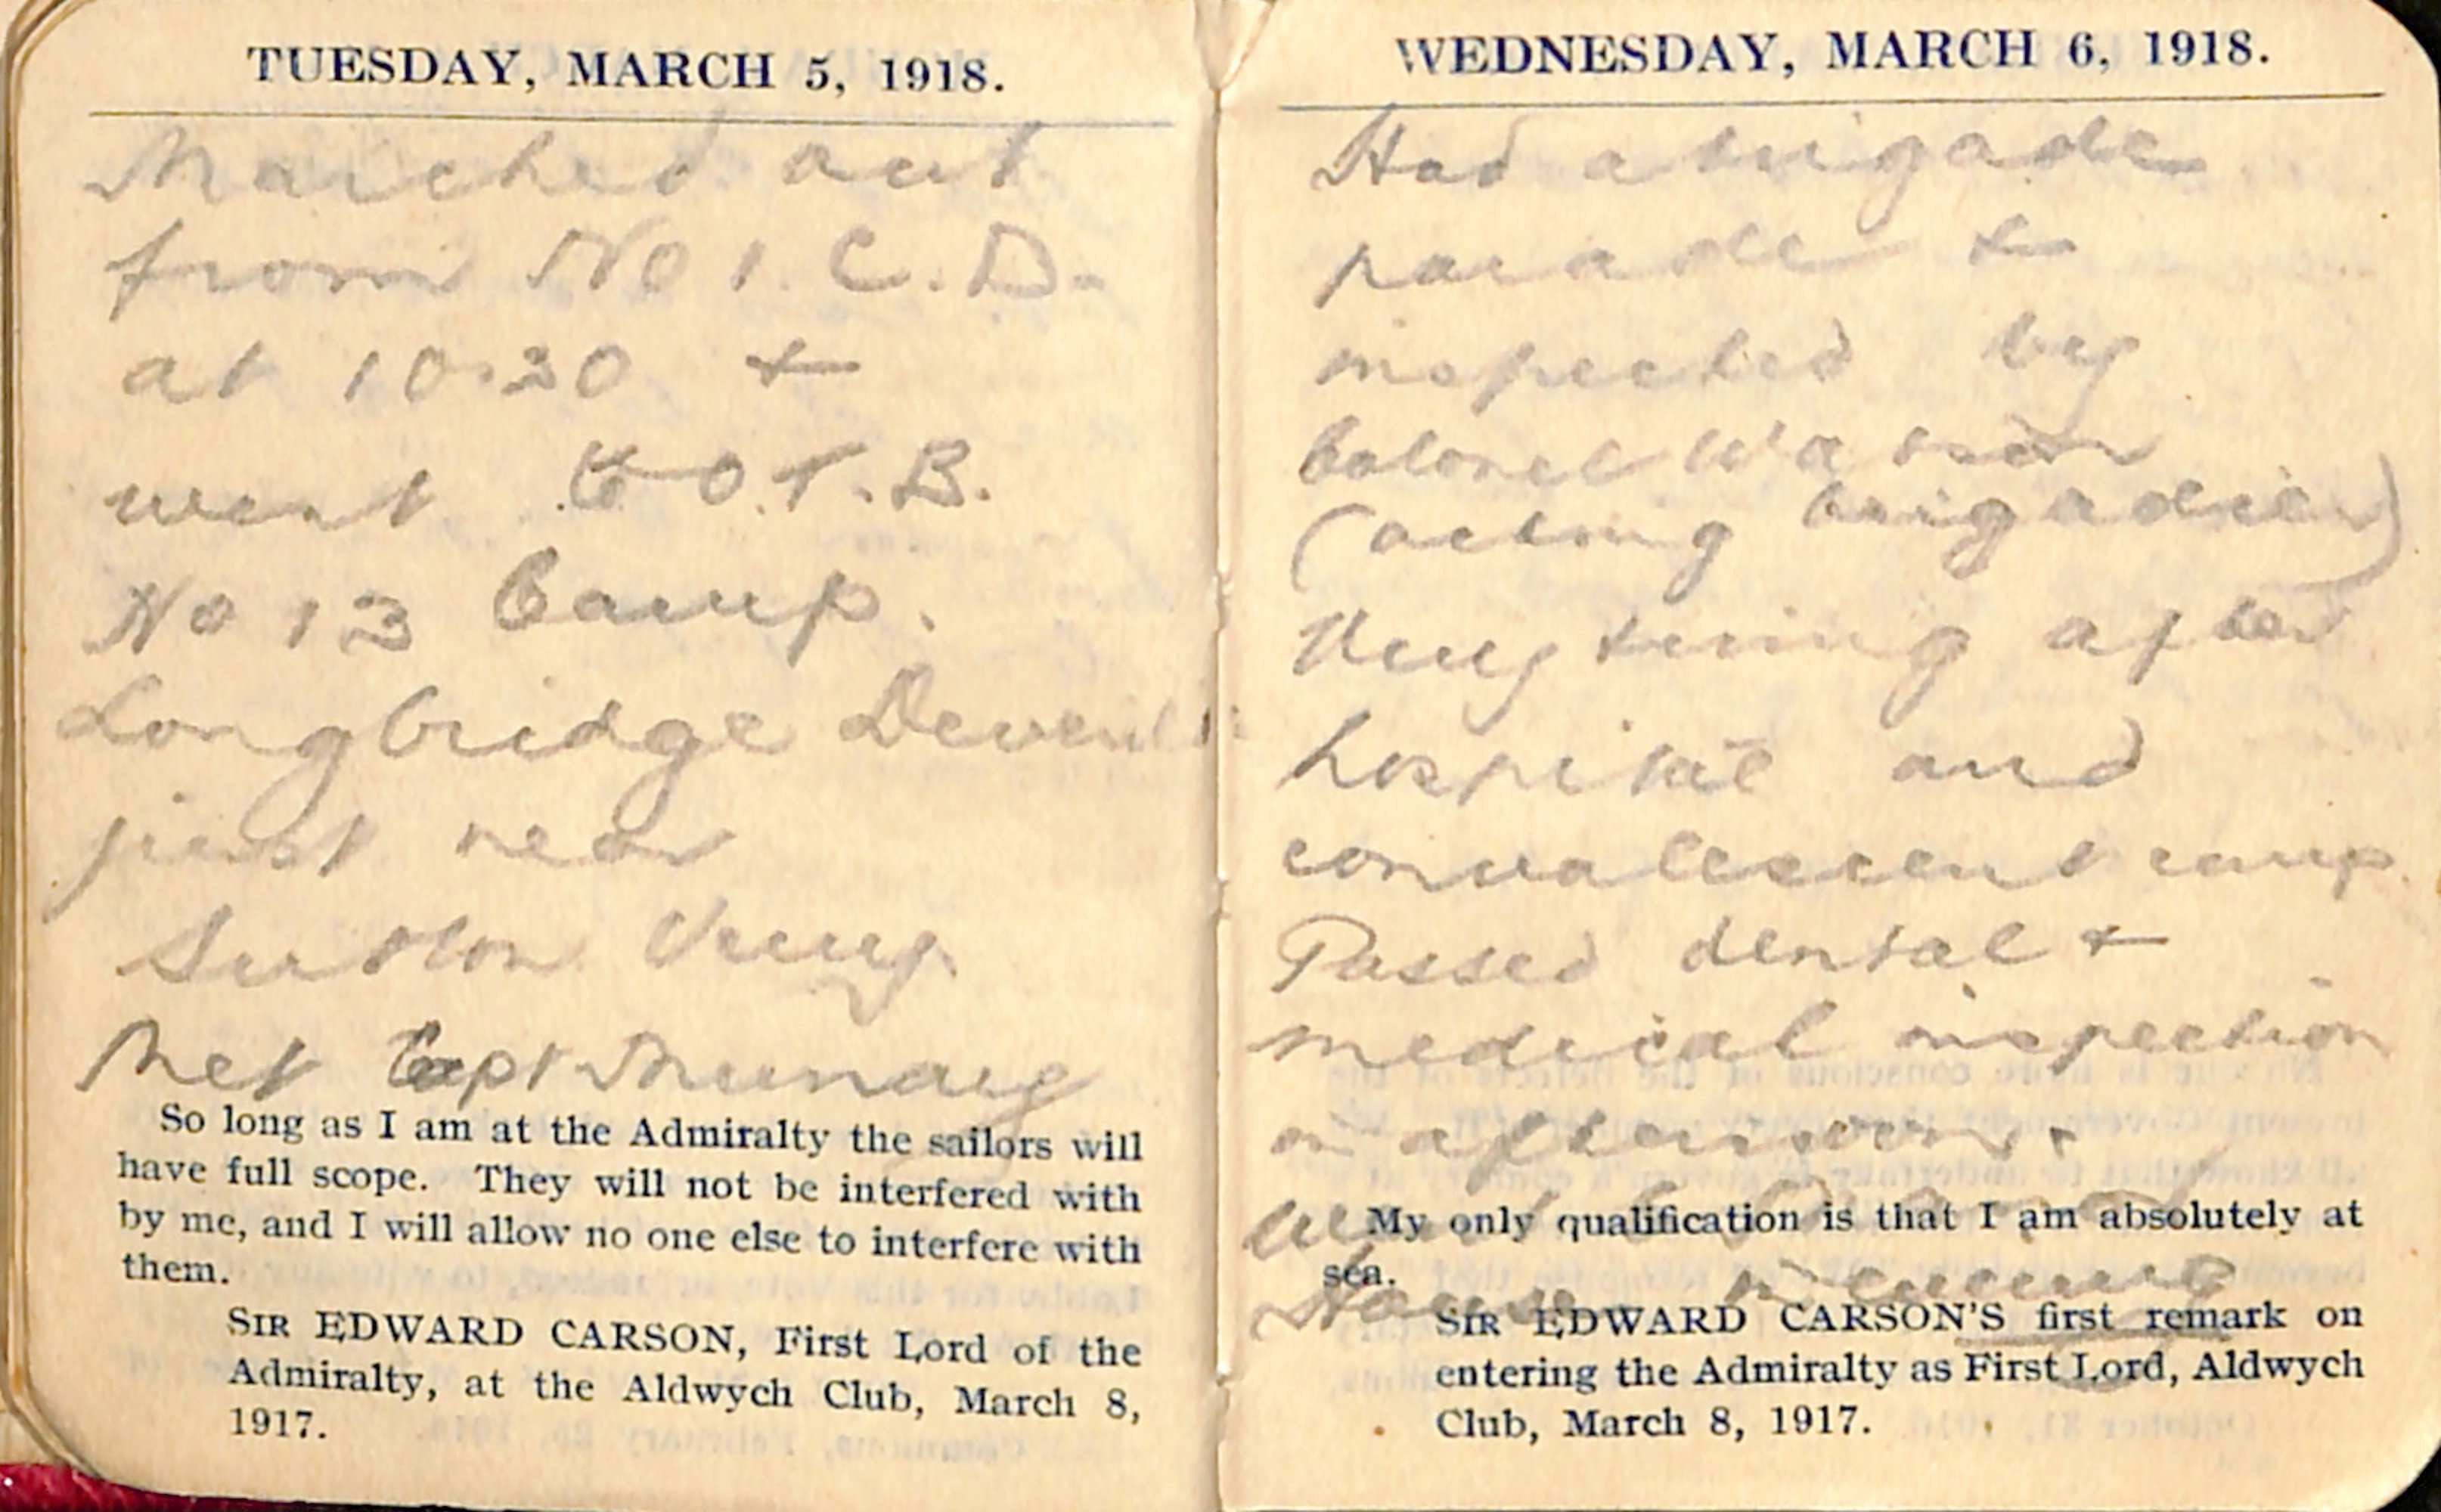 TUESDAY, MARCH 5, 1918.
Marched out
from No 1. C. D.
at 10.30 +
went to O.T.B.
No 13 Camp.
Longbridge Deverill
just near
Sutton Veny.
Met Capt Munday
So long as I am at the Admiralty the sailors will
have full scope. They will not be interfered with
by me, and I will allow no one else to interfere with
them.
SIR EDWARD CARSON, First Lord of the
Admiralty, at the Aldwych Club, March 8,
1917.
WEDNESDAY, MARCH 6, 1918.
Had a brigade
parade +
inspected by
Colonel Watson
(acting brigadier)
Very tiring after
hospital and
convalescent camp.
Passed dental +
medical inspection
in afternoon.
House
My only qualification is that I am absolutely at
sea.
SIR EDWARD CARSON'S first remark on
entering the Admiralty as First Lord, Aldwych
Club, March 8, 1917.